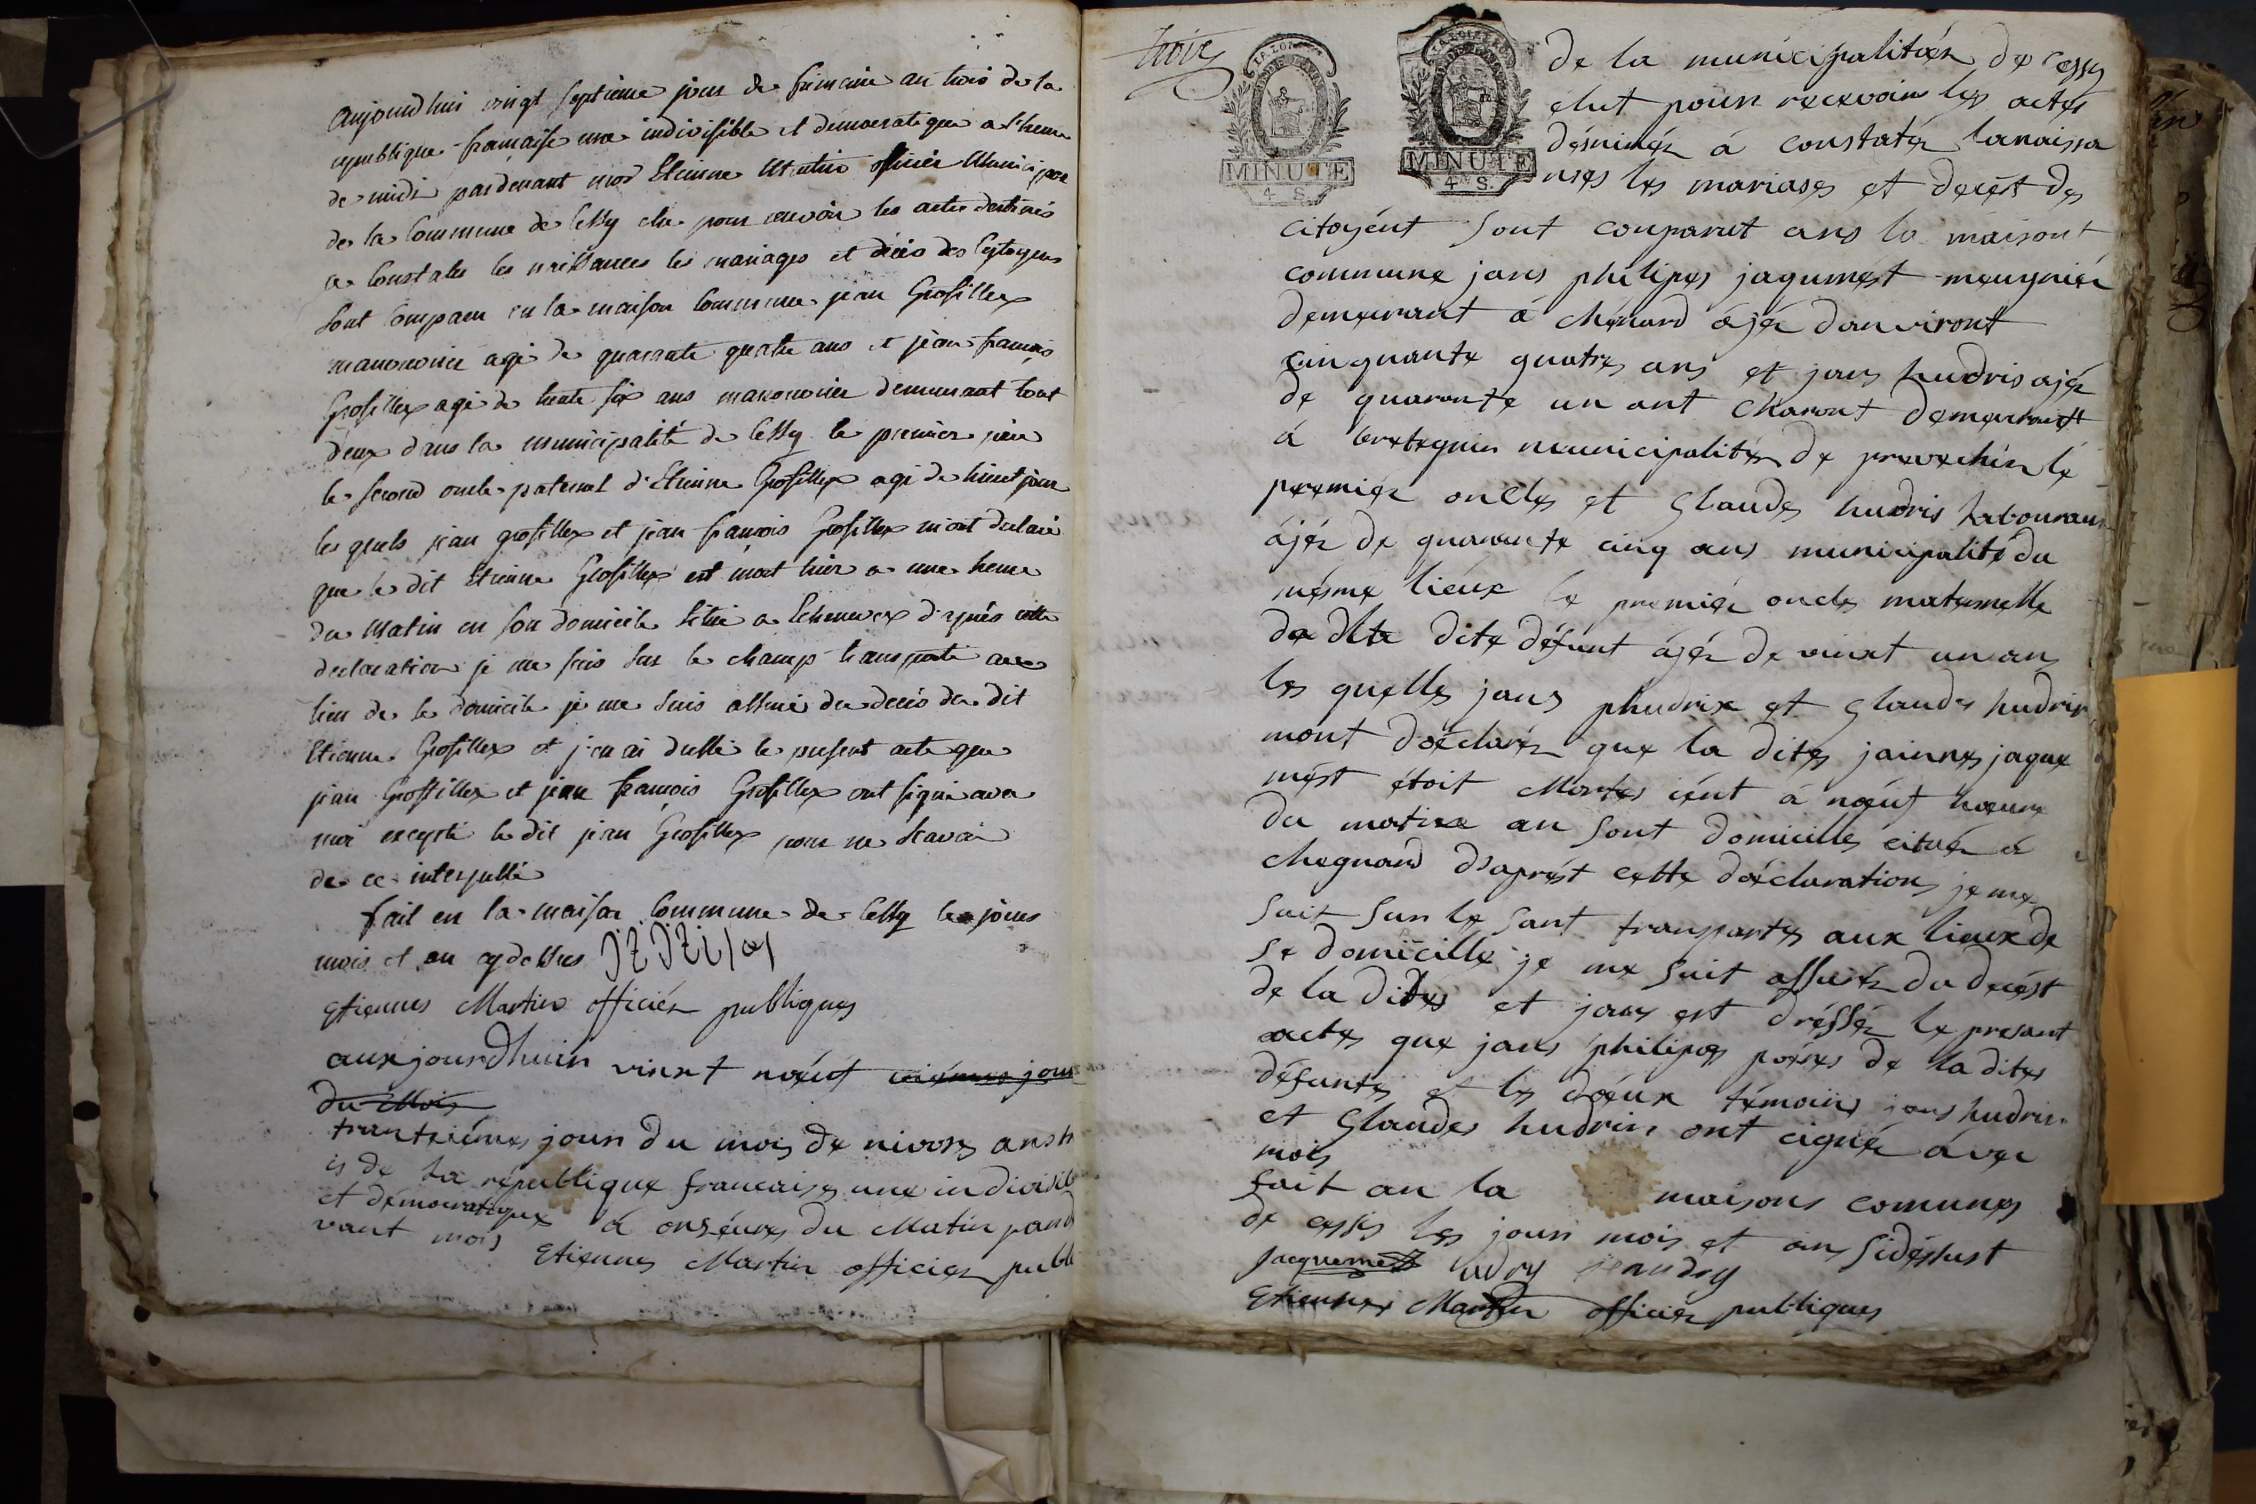 Aujourdhui vingt septieme jour de frimaire an trois de la
republique française une indivisible et democratique a l'heure
de midi pardevant moi Etienne Martin officier Municipal
de la Commune de Cessy elu pour recevoir les actes destinés
a Constater les naissances les mariages et décès des Cytoyens
sont Comparu en la maison Commune jean Grosfillex
manouvrier agé de quarante quatre ans et jean françois
Grosfillex agé de trente six ans manouvrier demeurant tout
deux dans la municipalité de Cessy le premier père
le second oncle paternel d'Etienne Grosfillex agé de huit jour
les quels jean grosfillex et jean françois Grosfillex m'ont declaré
que le dit Etienne Grosfillex est mort hier a une heure
du Matin en son domicile situé a d'après cette
declaration je me suis sur le champ transporté au
lieu de le domicile je me suis assuré du decès du dit
Etienne Grosfillex et j'en ai dressé le present acte que
jean Grosfillex et jean françois Grosfillex ont signé avec
moi excepté le dit jean Grosfillex pour ne scavoir
de ce interpellé
fait en la maison Commune de Cessy les jours
mois et an cydessus
Etiennes Martin officiér publiques
auxjourdhuin vinxt nœuf jour
du Mois
trantxiémes jour du mois de nivoses ans tr
is de la république francaises une indivisib
et démocratique à onséures du Matin pard
vant mois
Etiennes Martin officier publi
trois
LA LOI
MINUTE
4 S.
LA LOI
MINUTE
4 S.
de la municipalitée de Cessy
élut pour recevoir les actes
désninéz à constatér lanaissa
nses les mariages et decést des
citoyént sont comparut ans la maisont
commune jans philipes jaqumest meugniér
demeurant à chenard àjéz danviront
cinquante quatres ans et jans hudris ajéz
de quarante un ant charont demeurant
à bretegnin municipalités de prevechin le
premiér oncles et Glaudes hudris labouraur
àjéz de quarante cinq ans municipalité du
mésme lieux le premiér oncles maternelle
de dite défunt àjéz de vinxt un ans
les quelles jans phudrix et Glaudes hudrix
mont doéclaréz que la dites jainnes jaque
mést étoit Mortes iént à nœuf hœure
du matin an sont domicilles cituéz à
chegnard dsaprést cette doéclarations jeme
suit sur le sant transportes aux lieux de
se domicille je me suit assuréz du decést
de la dites et jans est dréssér le presant
actes que jans philipes poéres de la dites
défuntes et les doeux témoins jans hudrix
et Glaudes hudrix ont cignéz àvec
mois
fait an la maisons comunes
de cessis les jours mois et ans sidéssust
Jacquemet udry jeanudry
Etiennes Martin officiér publiques